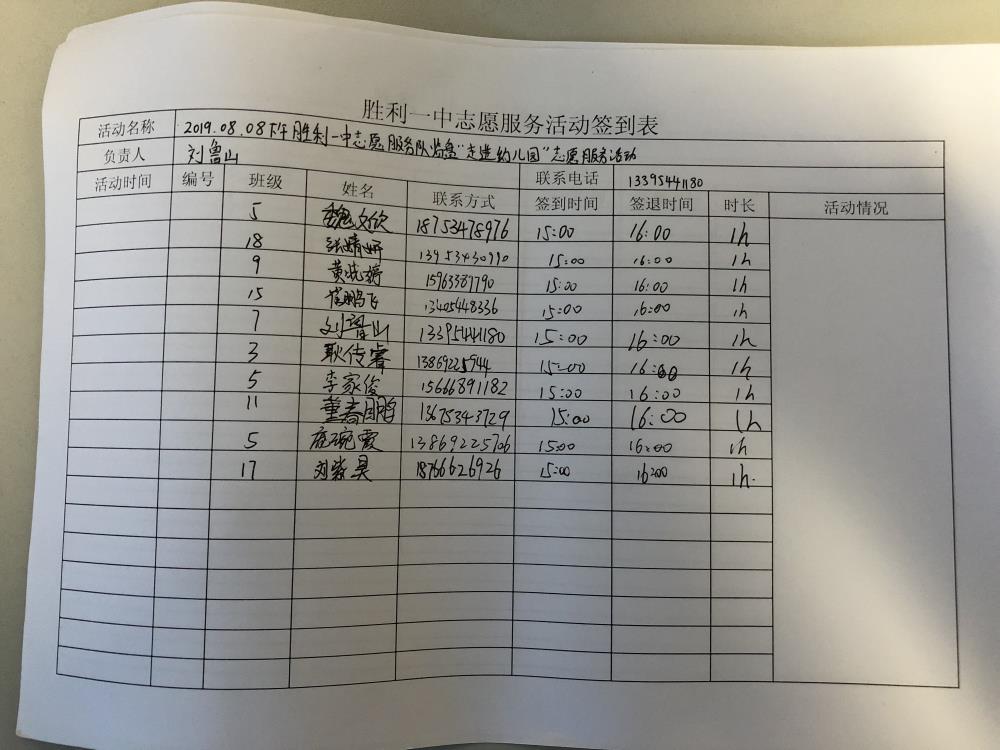 胜利一中志愿服务活动签到表
活动名称 2019.08.08下午胜利一中志愿服务队 "走进幼儿园"志愿服务活动
负责人 刘鲁山 联系电话 13395441180
活动时间 编号 班级 姓名 联系方式 签到时间 签退时间 时长 活动情况
5 魏文欣 18753478976 15:00 16:00 1h
18 张婧妍 13953430990 15:00 16:00 1h
9 黄晓婷 15963387790 15:00 16:00 1h
15 崔鹏飞 13405448336 15:00 16:00 1h
7 刘鲁山 13395441180 15:00 16:00 1h
3 耿传睿 13869225944 15:00 16:00 1h
5 李家俊 15666891182 15:00 16:00 1h
11 13675343729 15:00 16:00 1h
5 13869225706 15:00 16:00 1h
17 刘紫昊 18766626926 15:00 16:00 1h.